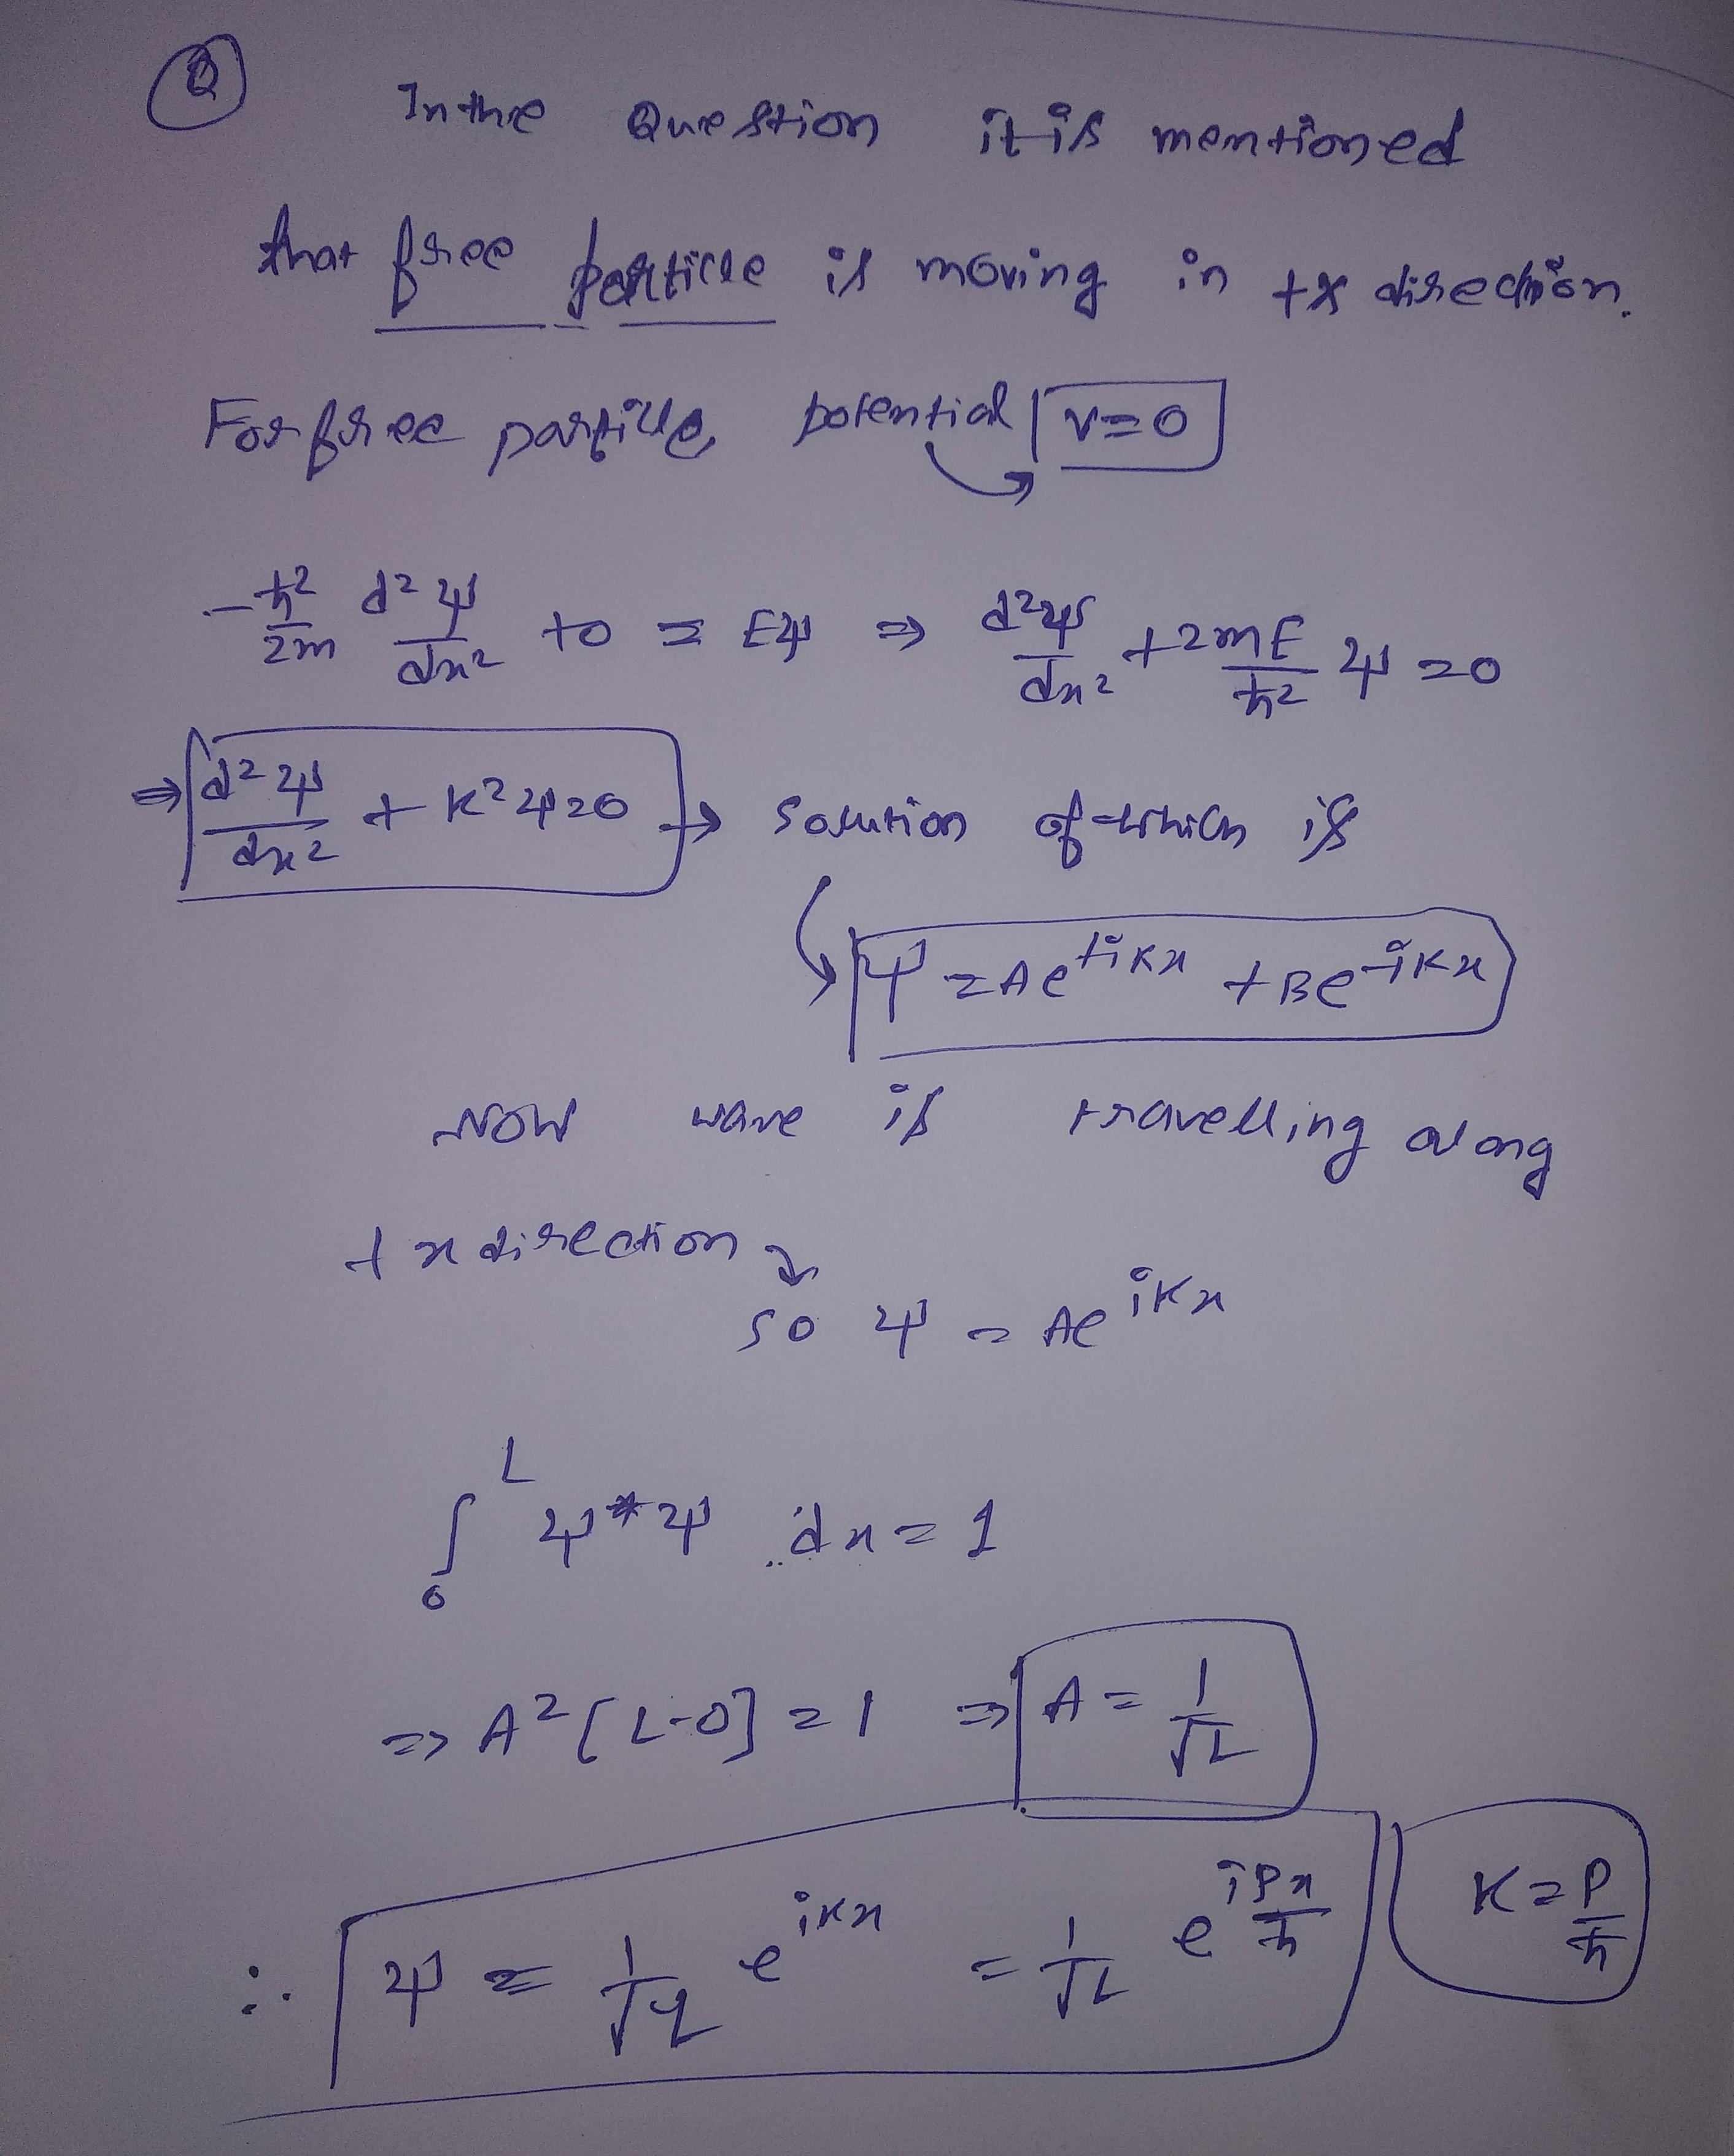 Q In the Question it is mentioned
that free particle is moving in +x direction.
For free particle, potential V=0
-ħ²/2m d²ψ/dx² + 0 = Eψ ⇒ d²ψ/dx² + 2mE/ħ² ψ = 0
⇒ d²ψ/dx² + K²ψ = 0 → solution of which is
ψ = Ae^{+iKx} + Be^{-iKx}
Now wave is travelling along
+x direction
so ψ = Ae^{iKx}
∫₀^L ψ*ψ dx = 1
⇒ A²[L-0] = 1 ⇒ A = 1/√L
∴ ψ = 1/√L e^{iKx} = 1/√L e^{iPx/ħ} K = P/ħ